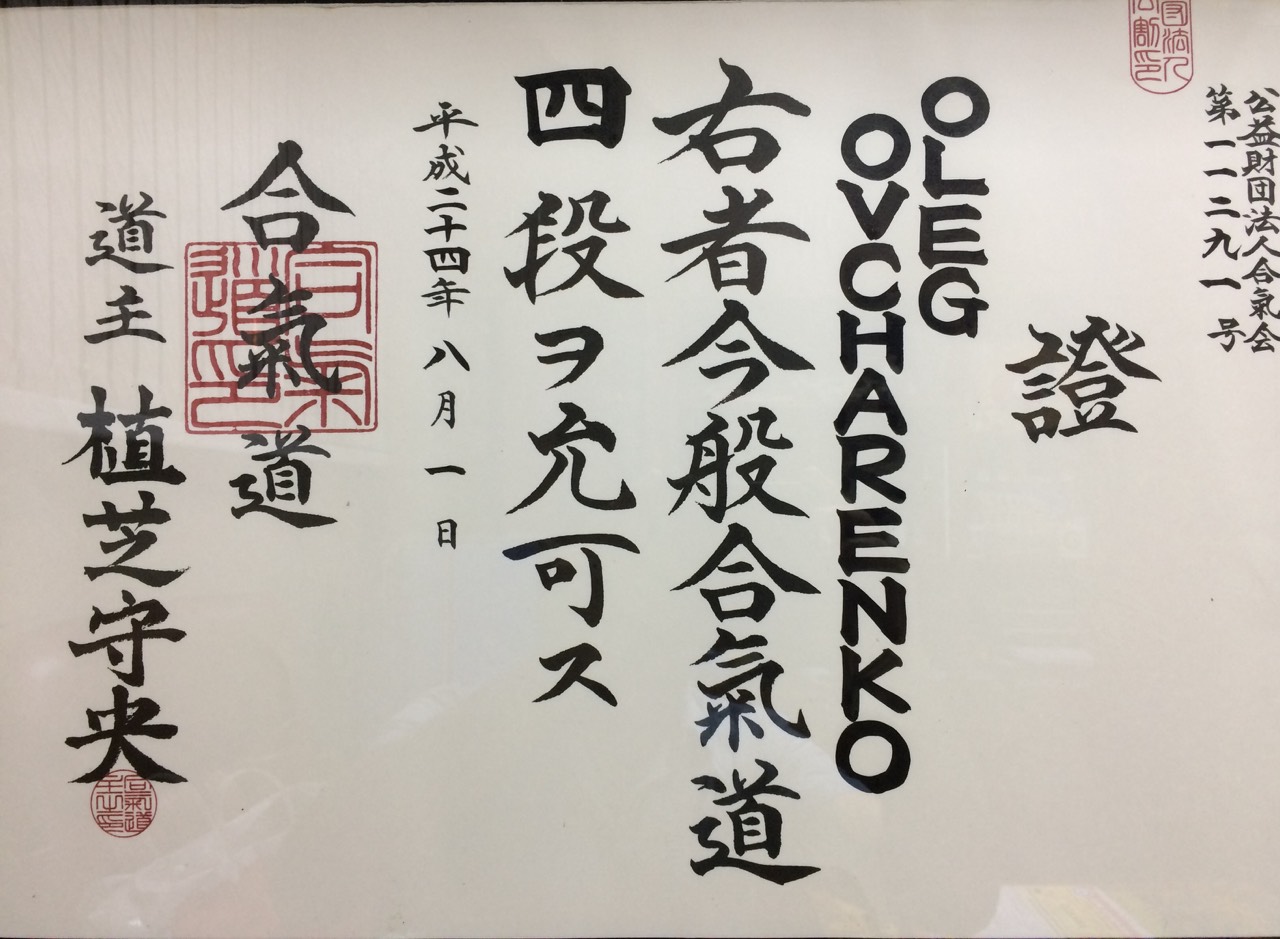 公益財団法人合氣会
第一一二九一号
證
OLEG
OVCHARENKO
右者今般合氣道
四段ヲ允可ス
平成二十四年八月一日
合氣道
道主 植芝守央